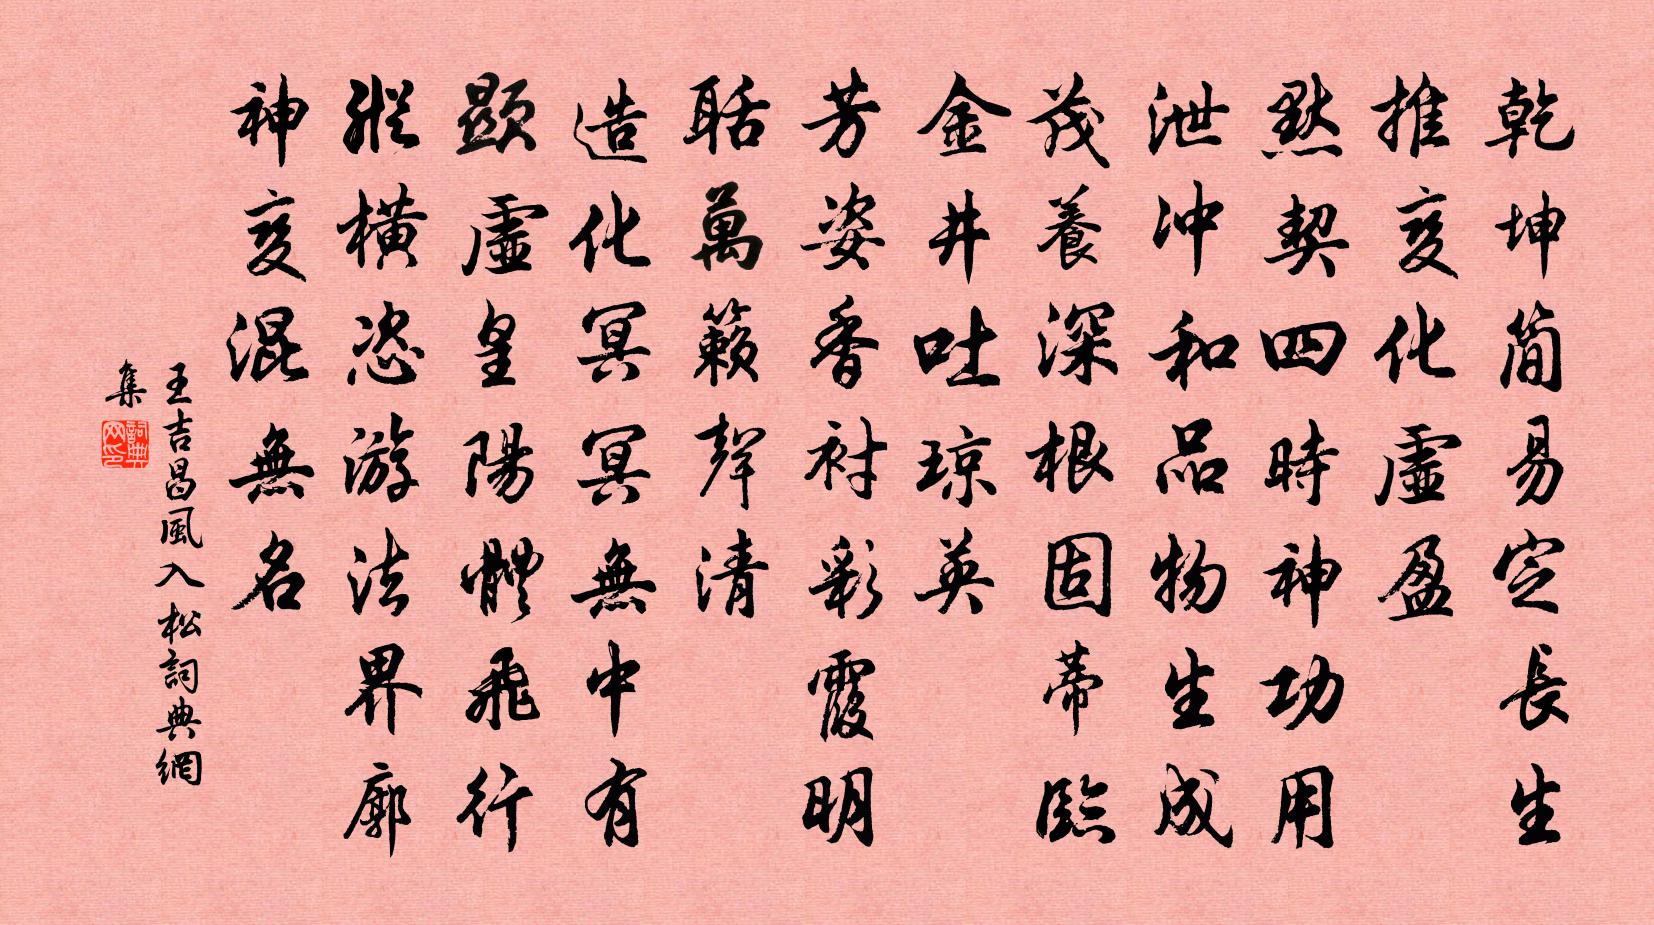 乾坤简易定長生
推变化虚盈
默契四時神功用
泄冲和品物生成
茂養深根固蒂臨
金井吐琼英
芳姿香衬彩霞明
聒萬籁聲清
造化冥冥無中有
顯虚皇陽體飛行
縱横恣游法界廓
神变混無名
王吉昌風入松詞典網
集
詞典网印